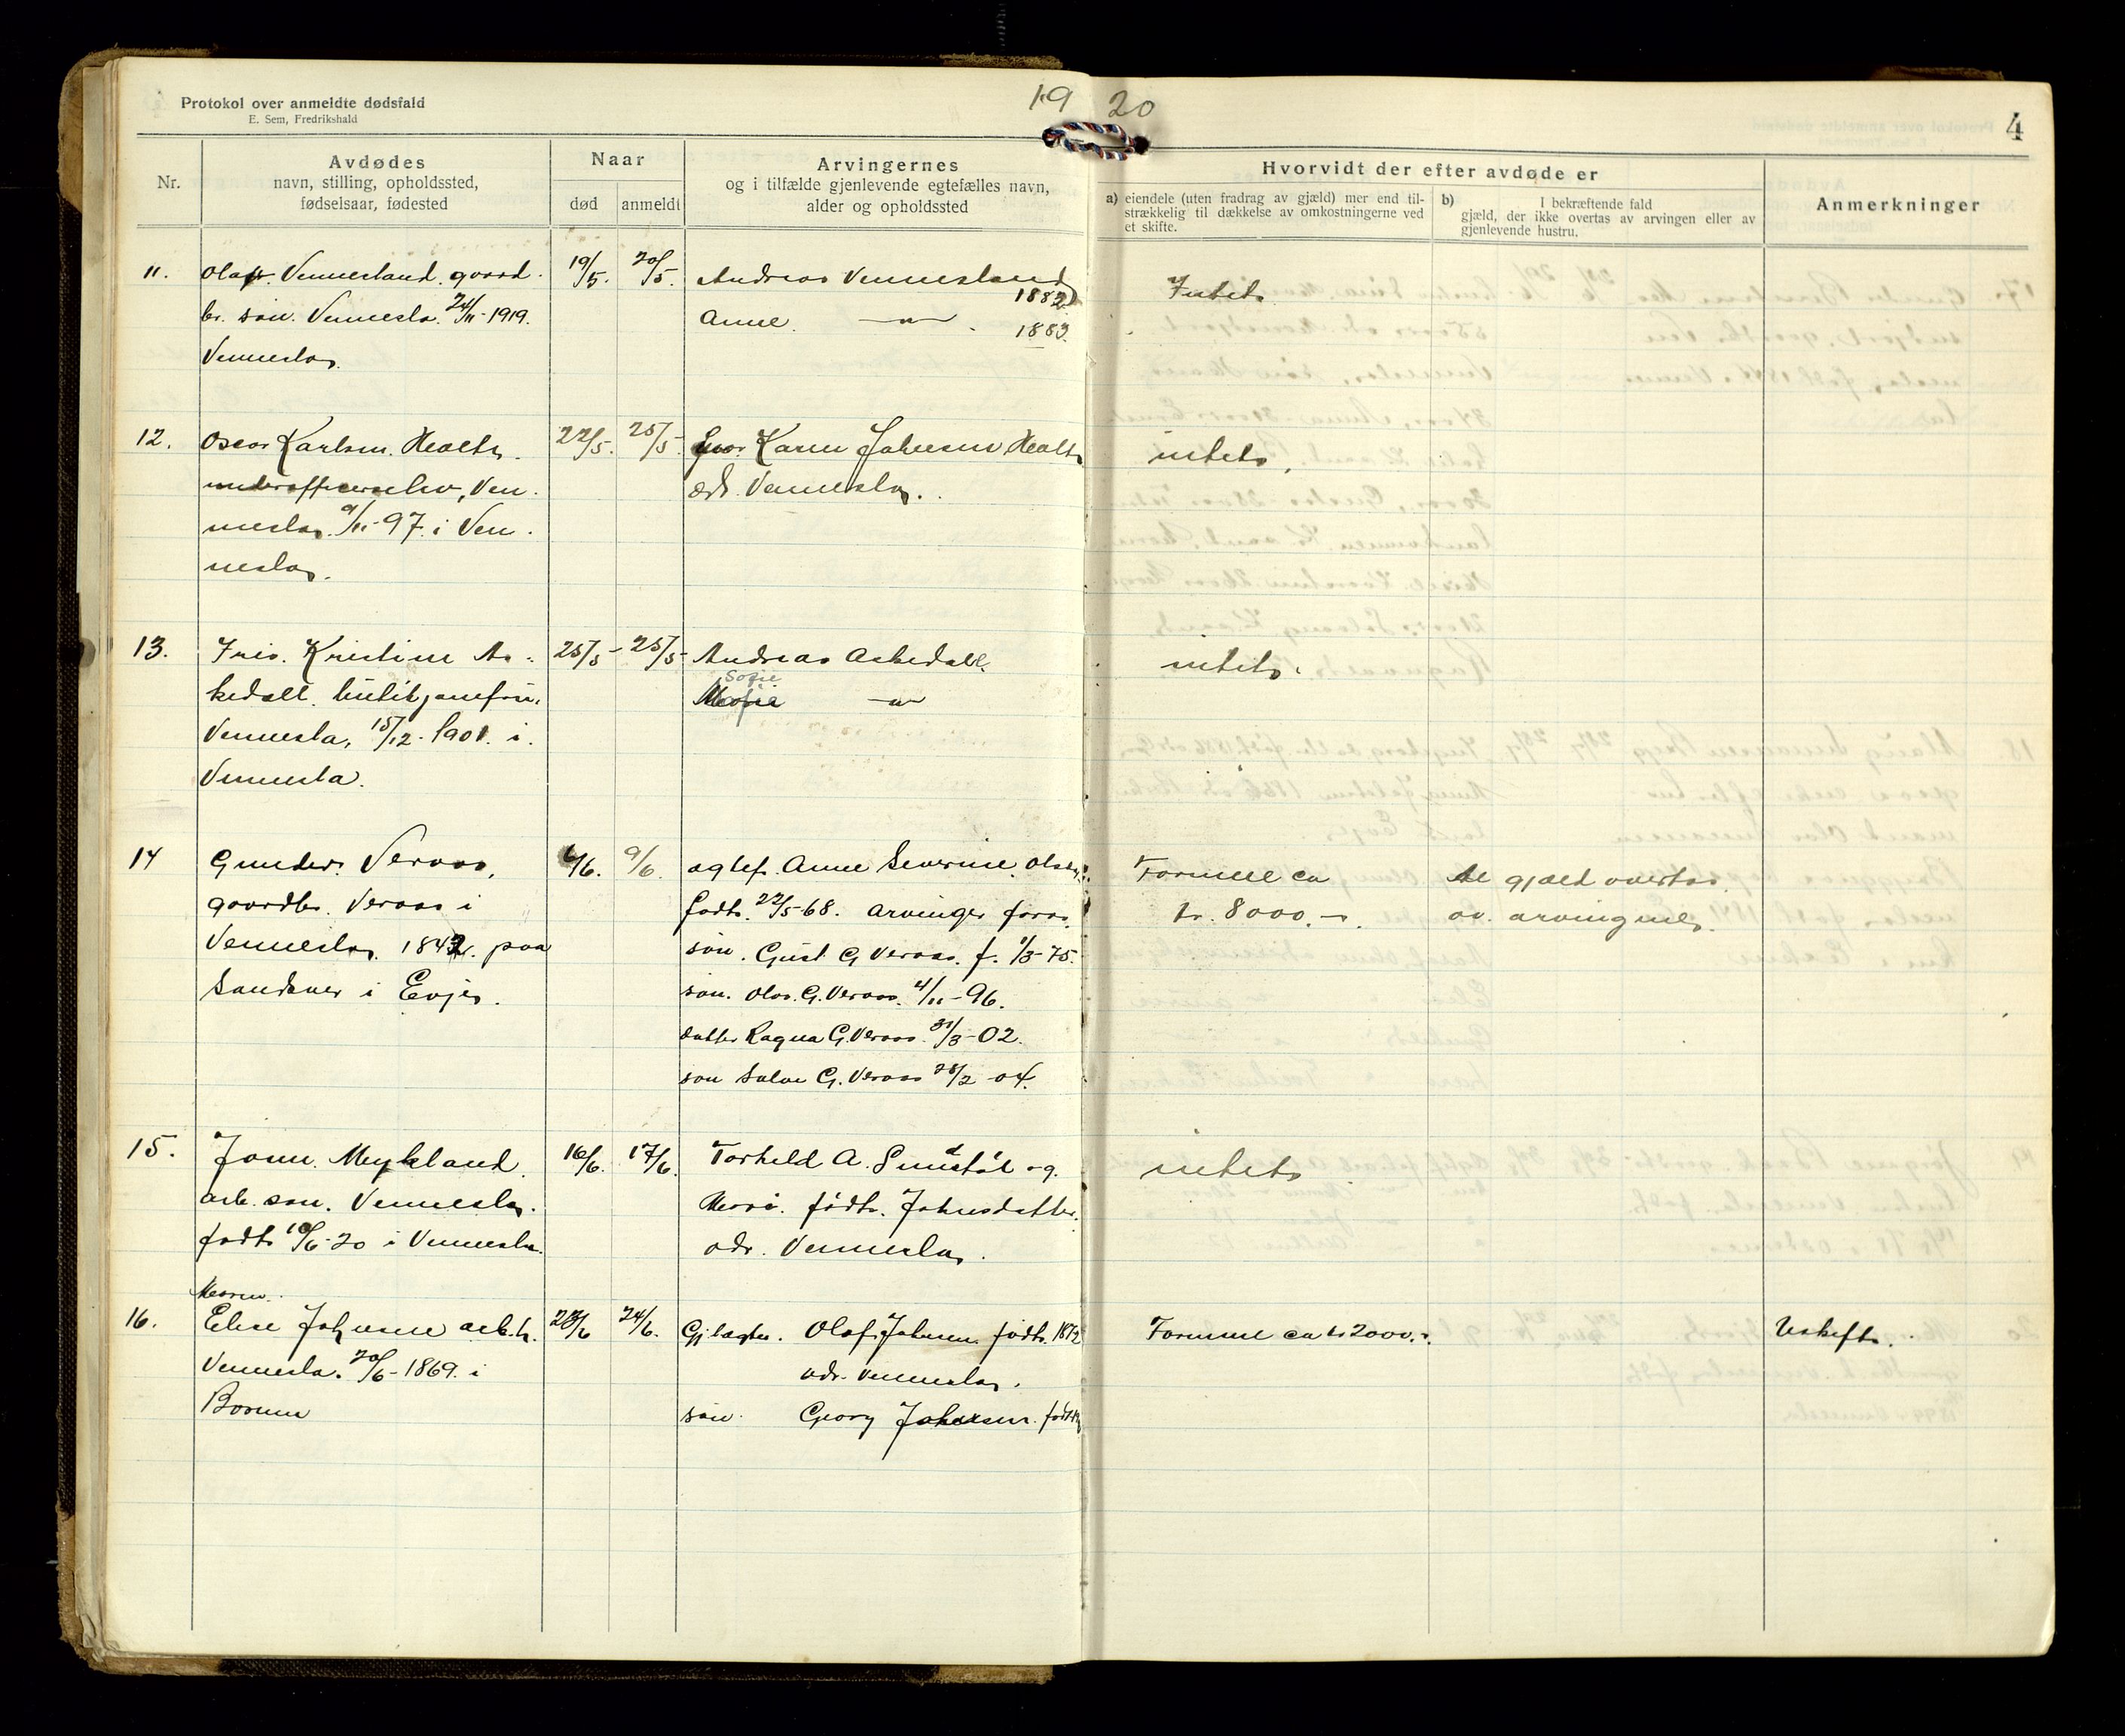 Protokol over anmeldte dødsfald
E. Sem, Fredrikshald
19 20
4
Nr.
Avdødes
navn, stilling, opholdssted,
fødselsaar, fødested
Naar
død
anmeldt
Arvingernes
og i tilfælde gjenlevende egtefælles navn,
alder og opholdssted
Hvorvidt der efter avdøde er
a) eiendele (uten fradrag av gjæld) mer end til-
strækkelig til dækkelse av omkostningerne ved
et skifte.
b) I bekræftende fald
gjæld, der ikke overtas av arvingen eller av
gjenlevende hustru.
Anmerkninger
11. Olaf Vennesland gaard 19/5. 20/5. Andreas Vennesland Intet
1882
br. søn. Vennesla. 24/11-1919. Anne —"— 1883
Vennesla.
12. Oscar Karlsen 22/5. 25/5 Karen Johnsen intet.
Ven adr. Vennesla.
nesla. 9/11-97 i Ven
nesla.
13. Kristine As 25/5- 25/5- Andreas Askedall. intet.
Sofie
kedall. —"—
Vennesla, 15/12-1901. i.
Vennesla.
14 Gunder Veraas, 6/6. 9/6. egtef. Anne Severine Formue ca al gjæld overtas
gaardbr. Veraas i født 22/5-68. arvinger kr. 8000.- av. arvingene.
Vennesla 1842. paa søn. Gust. G Veraas. f. 1/3-75.
i Evje. søn. Olav. G. Veraas. 4/11-96.
datter Ragna G. Veraas. 31/3-02.
søn Salve G. Veraas 28/2-04.
15. Mykland 16/6. 17/6. Torkeld A. og. intet
arb. søn. Vennesla. født. Johnsdatter.
født 10/6-20 i Vennesla. adr. Vennesla.
Maren
16. Elise Johnsen arb.h. 23/6 24/6. Gj.lægtm. Olaf Johnsen født. 1872 Formue ca kr 2000.- Uskifte.
Vennesla. 20/6-1869. i adr. Vennesla.
søn. Georg Johnsen.